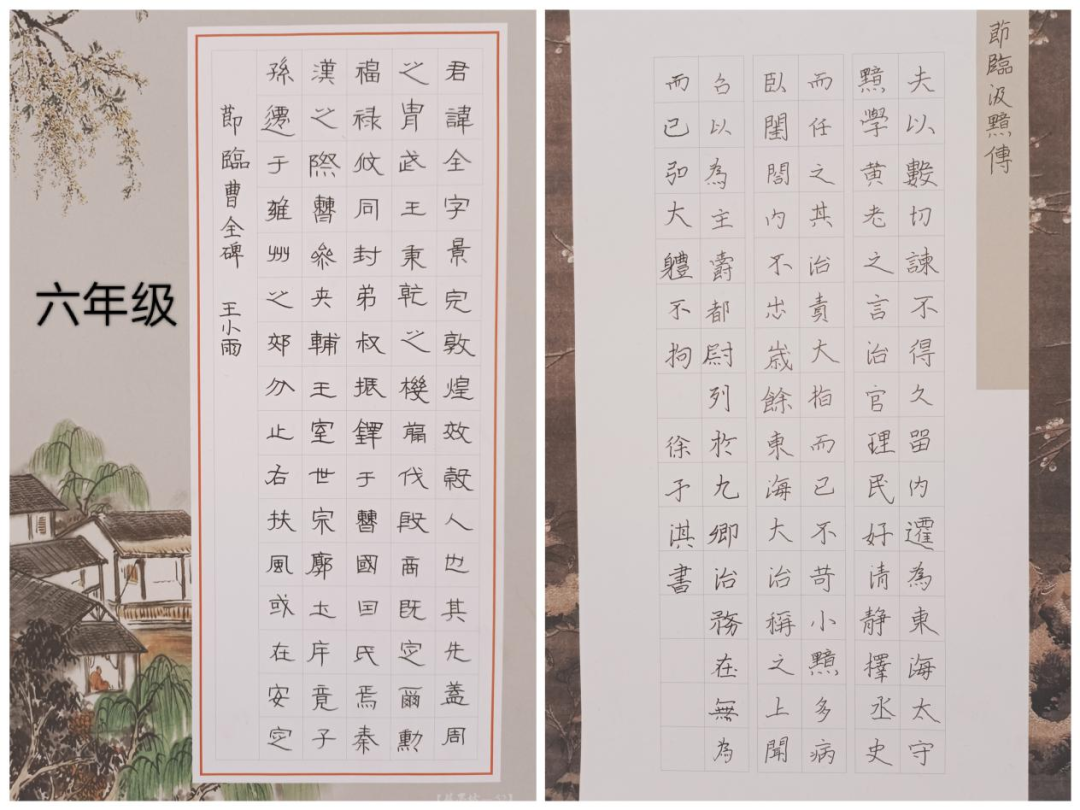 六年级
君諱全字景完敦煌效穀人也其先蓋周
之胄武王秉乾之機翦伐殷商既定爾勳
福禄攸同封弟叔振鐸于曹國因氏焉秦
漢之際曹參夾輔王室世宗廓土斥竟子
孫遷于雍州之郊分止右扶風或在安定
節臨曹全碑 王小雨
節臨汲黯傳
夫以數切諫不得久留内遷為東海太守
黯學黄老之言治官理民好清静擇丞史
而任之其治責大指而已不苛小黯多病
臥閨閤内不出歲餘東海大治稱之上聞
召以為主爵都尉列於九卿治務在無為
而已弘大軆不拘 徐子淇書